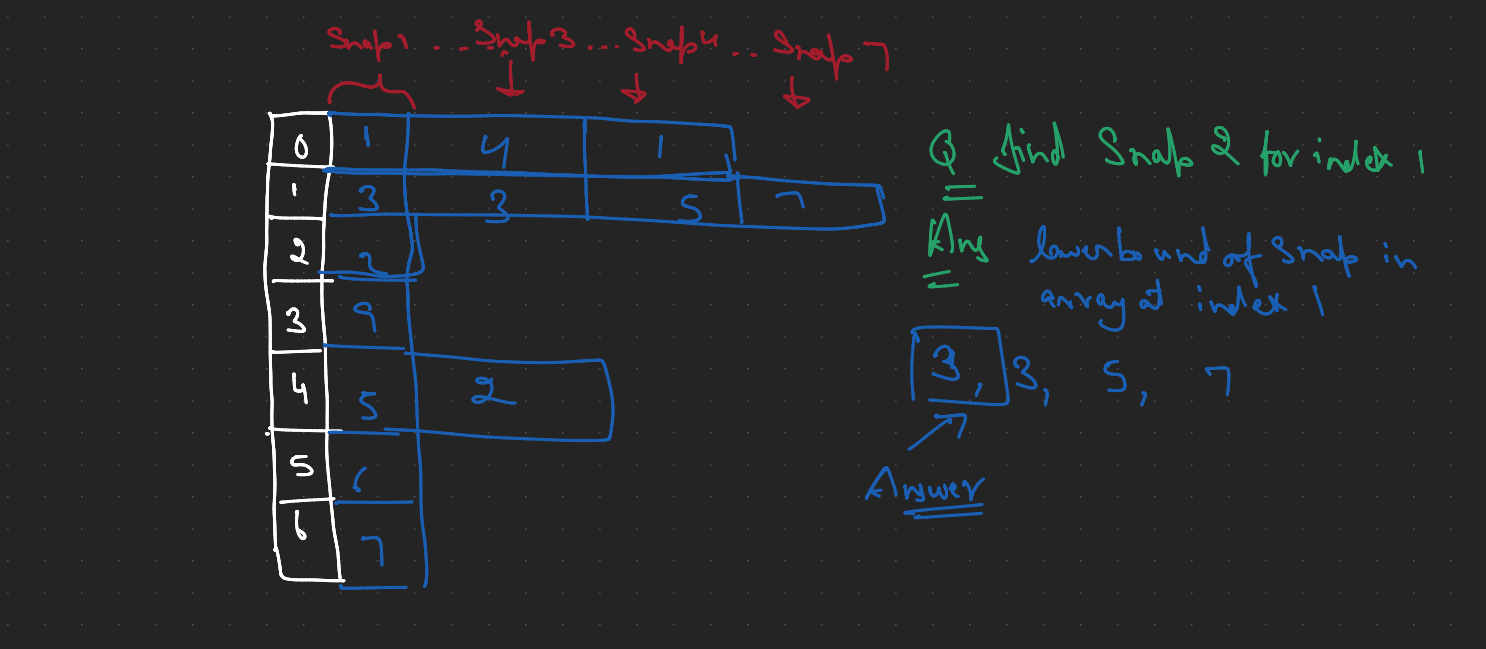 Snap 1 .... Snap 3 ... Snap 4 .. Snap 7
0 1 4 1
1 3 3 5 7
2 2
3 9
4 5 2
5 6
6 7
Q find Snap 2 for index 1
Ans lowerbound of Snap in
array at index 1
3, 3, 5, 7
Answer